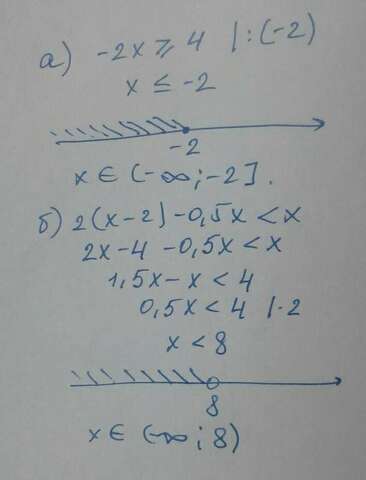 а) -2x ⩾ 4 | : (-2)
x ≤ -2
-2
x ∈ (-∞ ; -2].
б) 2(x-2) -0,5x < x
2x-4 -0,5x < x
1,5x-x < 4
0,5x < 4 | · 2
x < 8
8
x ∈ (-∞ ; 8)